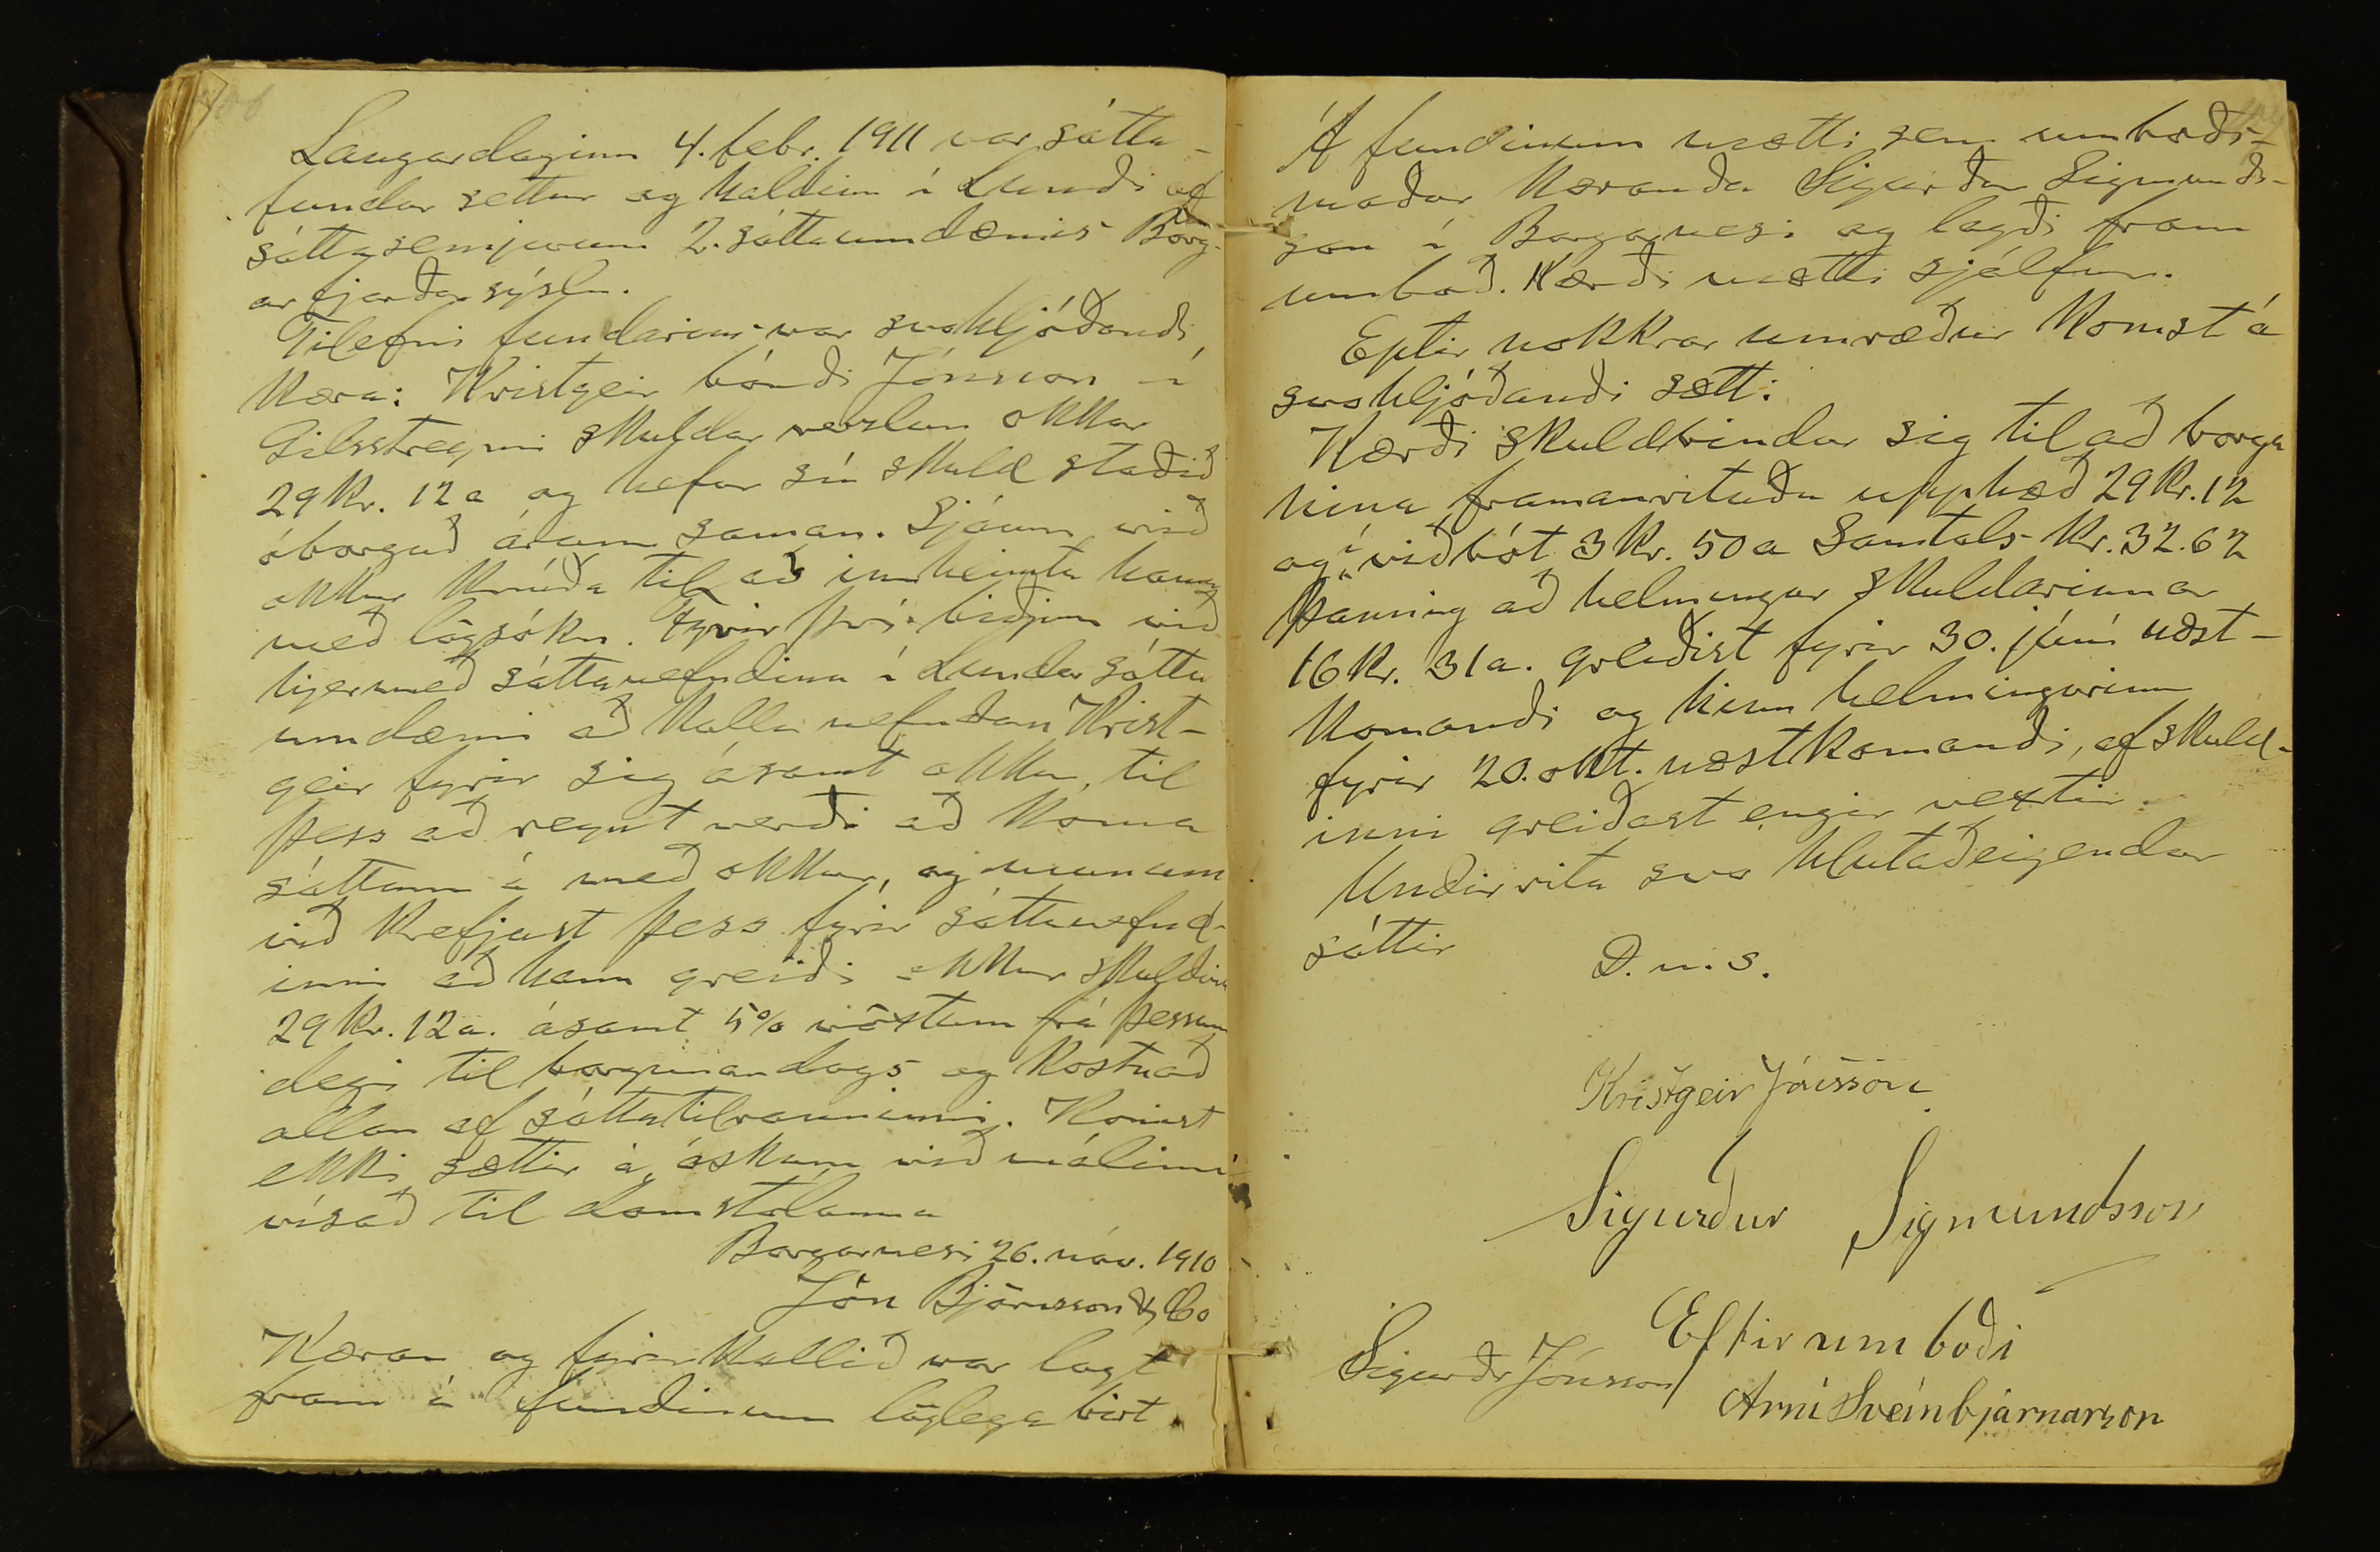 106
Laugardaginn 4. febr. 1911 var sátta-
fundur settur og haldinn í Lundi af
sáttasemjurum 2. sáttaumdæmis Borg-
arfjarðarsýslu.
Tilefni fundarins var svohljóðandi
kæra: Kristgeir bóndi Jónsson í
Gilsstreymi skuldar verslun okkar
29 kr. 12 a og hefur sú skuld staðið
óborguð árum saman. Sjáum við
okkur knúða til að innheimta hana
með lögsókn. Fyrir því biðjum við
hjermeð sáttanefndina í Lundar sátta
umdæmi að kalla nefndan Krist-
geir fyrir sig ásamt okkur, til
þess að reynt verði að koma
sáttum á með okkur, og munum
við krefjast þess fyrir sáttanefnd-
inni að hann greiði okkur skuldina
29 kr. 12 a. ásamt 5% vöxtum frá þessum
degi til borgunardags og kostnað
allan af sáttatilrauninni. Komist
ekki sættir á, óskum við málinu
vísað til domstolanna
Borgarnesi 26. nóv. 1910
Jón Björnsson & Co
Kæran og fyrirkallið var lagt
fram á fundinum löglega birt.
Á fundinum mætti sem umboðs-
maður kæranda Sigurður Sigmunds-
son í Borgarnesi og lagði fram
umboð. Kærði mætti sjálfur.
Eptir nokkrar umræður komst á
svohljóðandi sætt:
Kærði skuldbindur sig til að borga
hina framanrituðu upphæð 29 kr. 12
og í viðbót 3 kr. 50 a Samtals kr. 32.62
þannig að helmingur skuldarinnar
16 kr. 31 a. greiðist fyrir 30. júní næst-
komandi og hinn helmingurinn
fyrir 20. okt. næstkomandi, af skuld-
inni greiðast engir vextir.
Undirrita svo hlutaðeigendur
sáttir
D. u. s.
Kristgeir Jónsson
Sigurður Sigmundsson
Eftir umboði
Sigurðr Jónsson
Arni Sveinbjarnarson